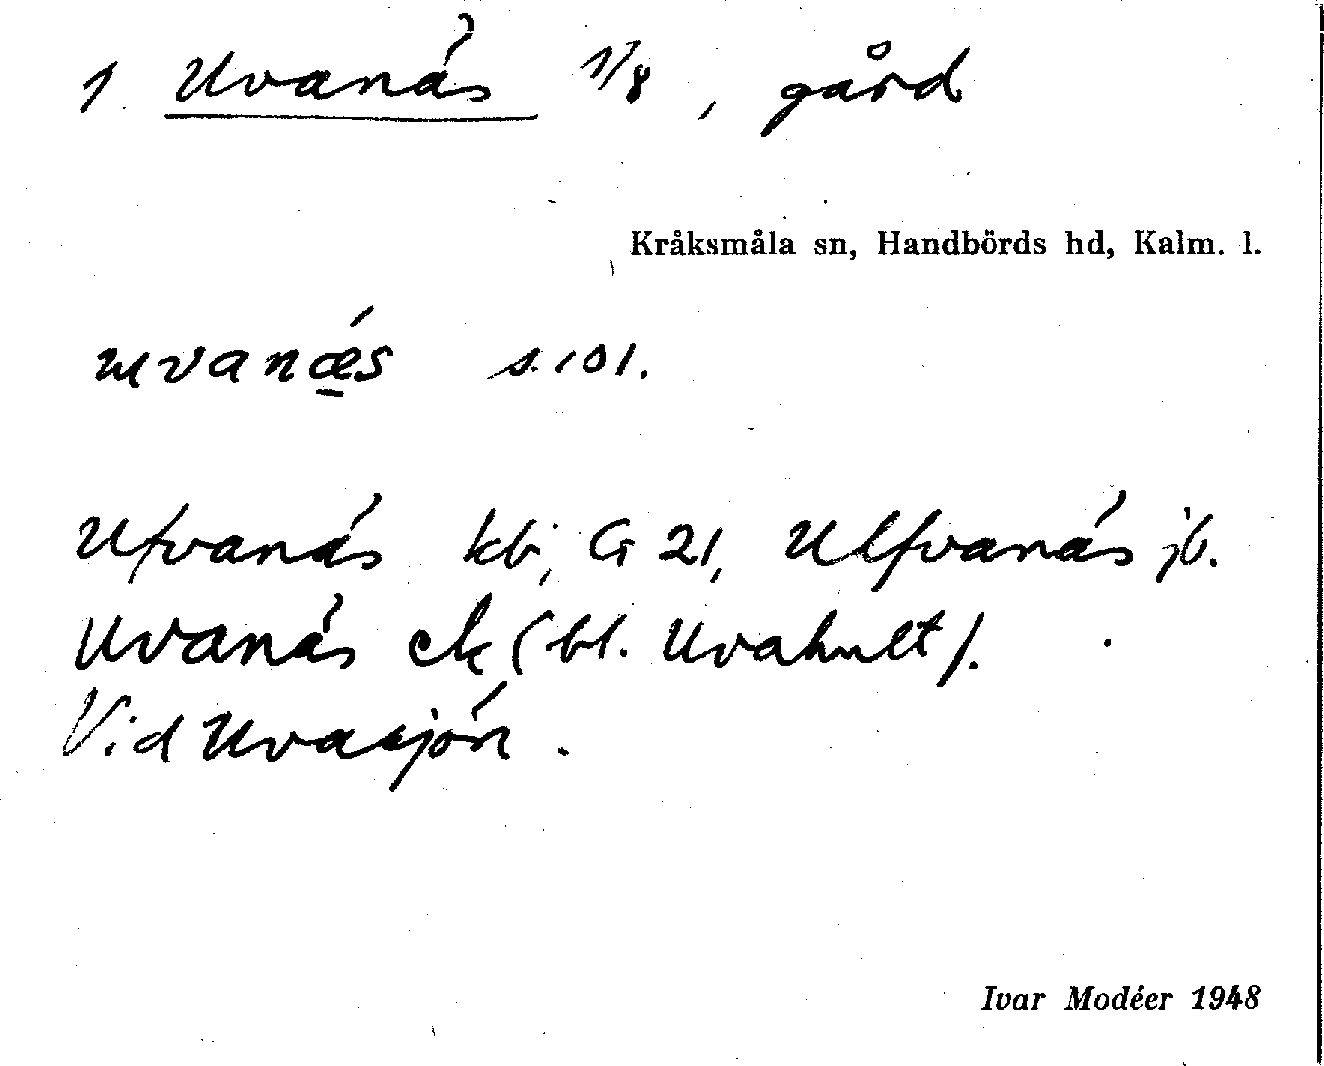 1 Uvanäs 1/8, gård
Kråksmåla sn, Handbörds hd, Kalm. l.
ɯvanǽs s. 101.
Ufvanäs kb, G 21, Ulfvanäs jb.
Uvanäs ek (bl. Uvahult).
Vid Uvasjön.
Ivar Modéer 1948